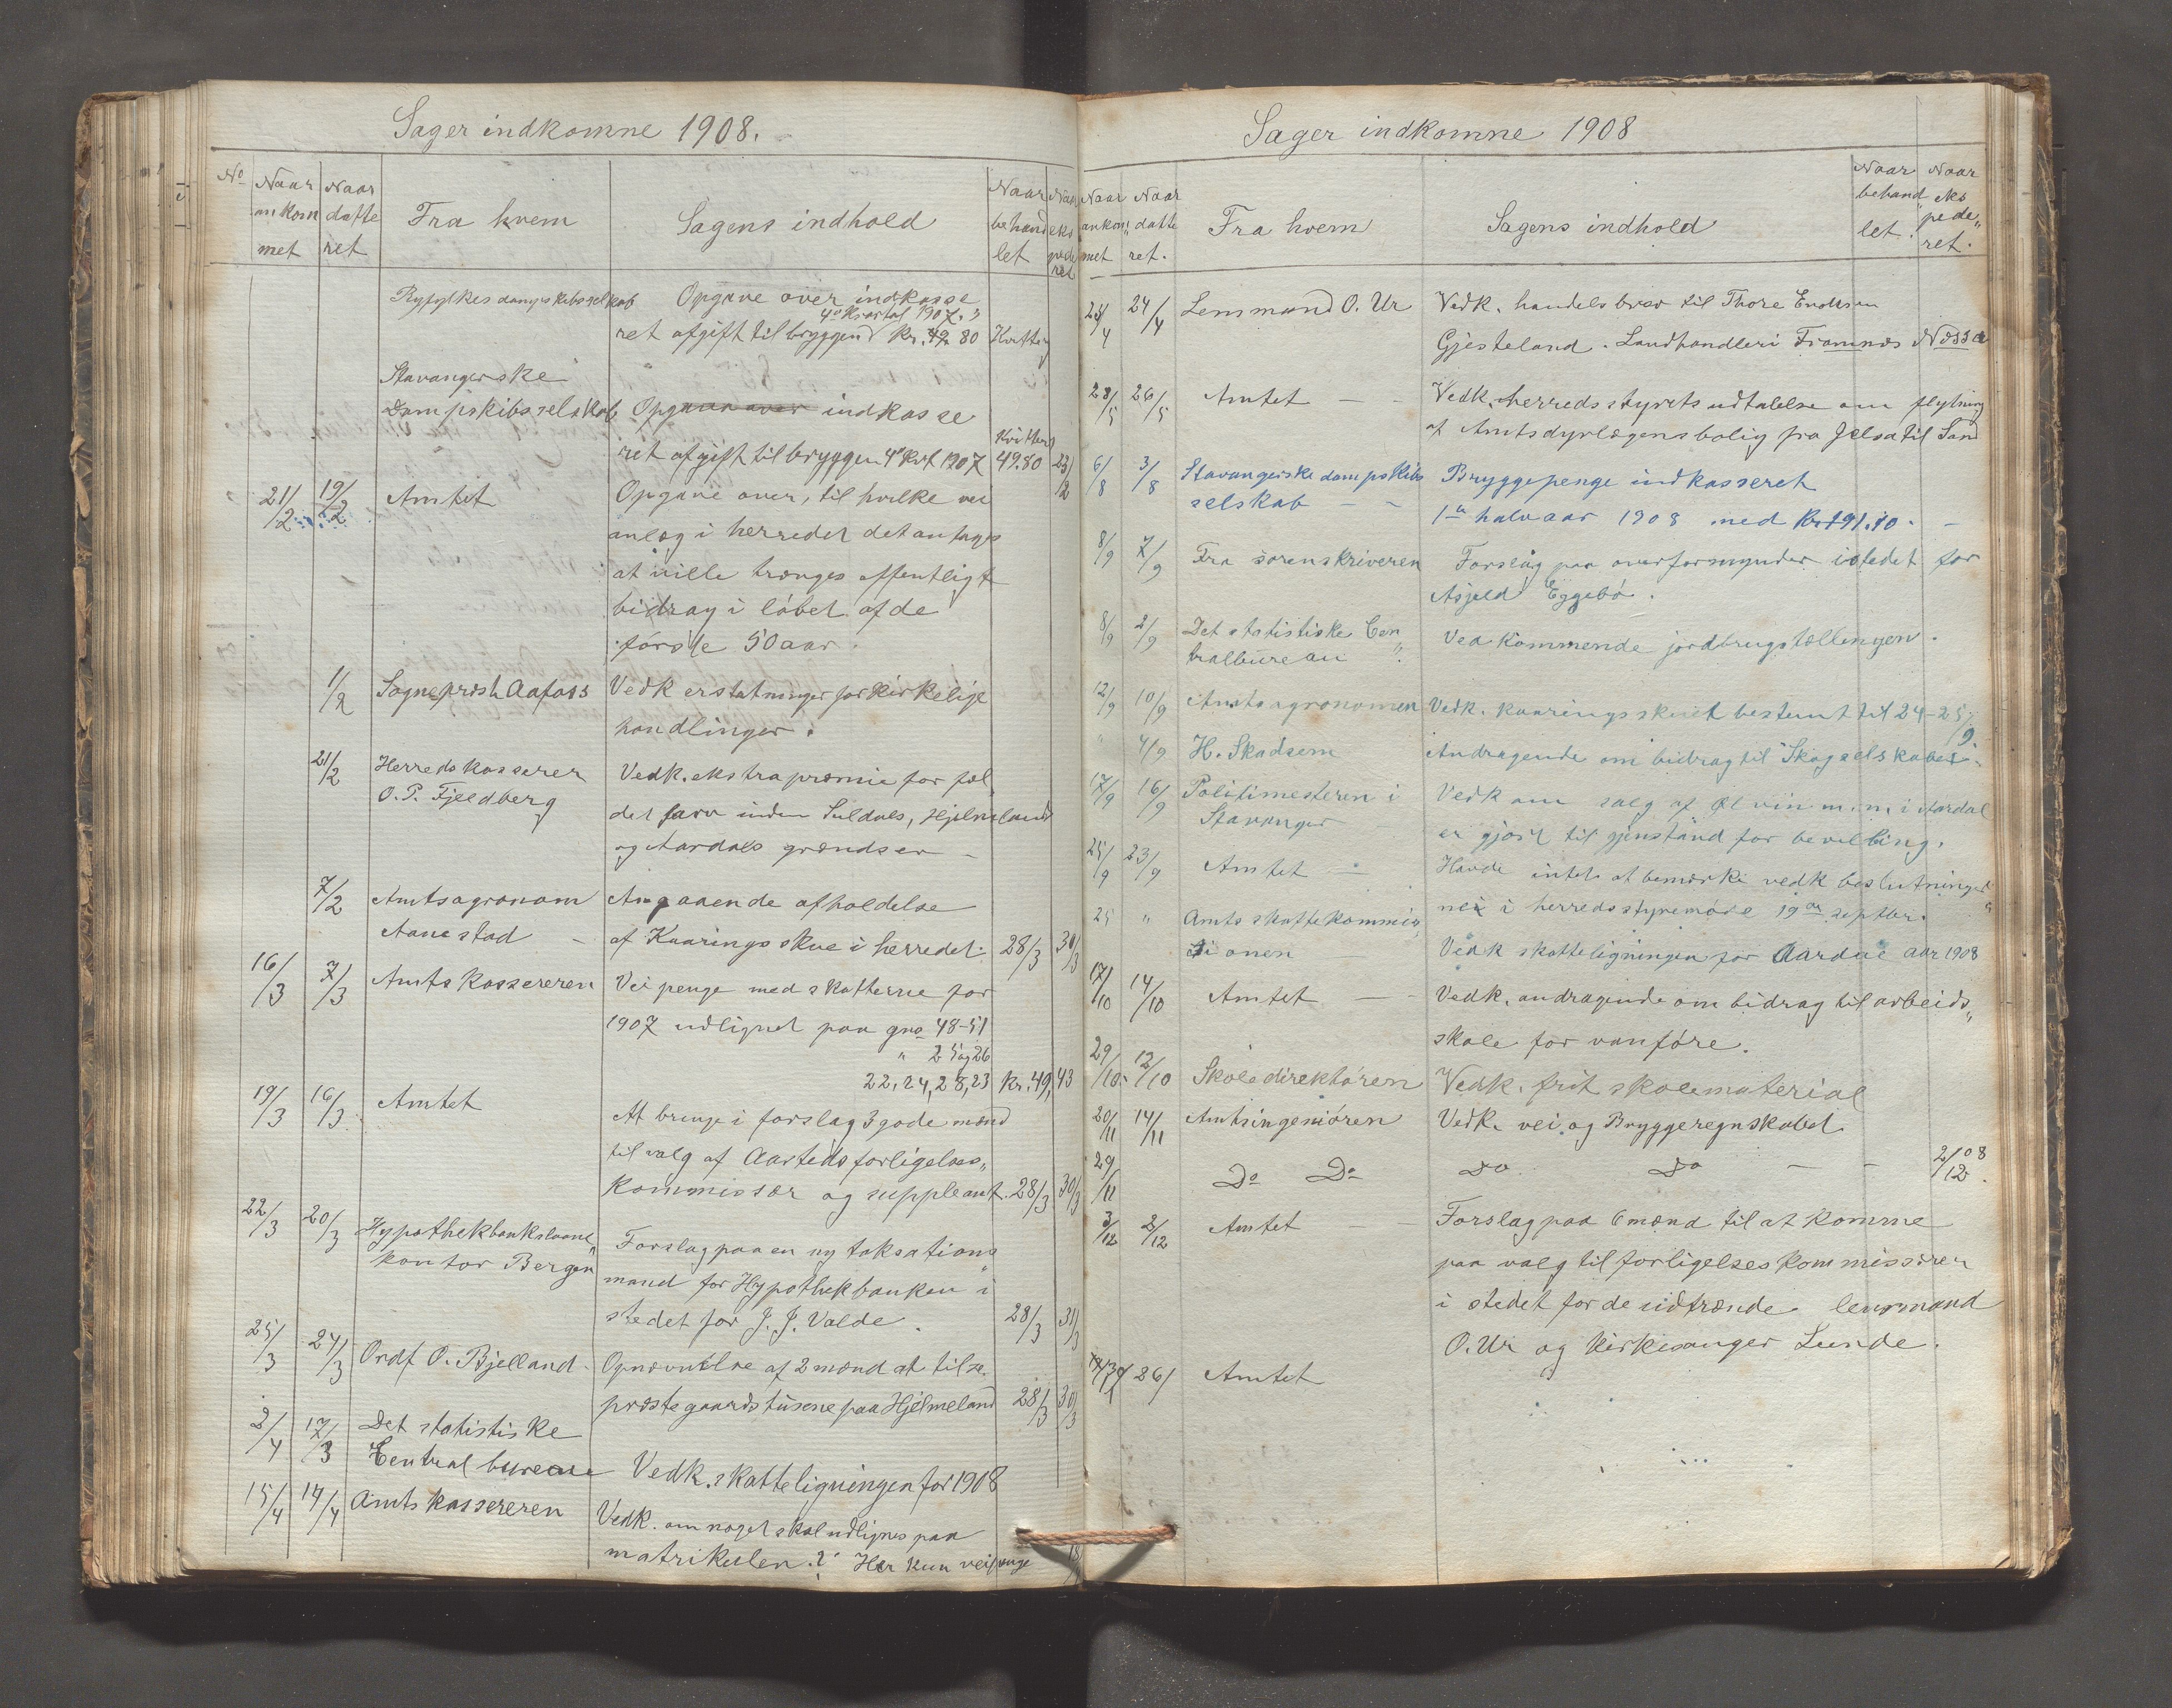 Sager indkomne 1908.
No Naar ankommet Naar datteret Fra hvem Sagens indhold Naar behandlet Naar ekspederet
Ryfylkes dampskibsselskab Opgave over indkasse
4de Kvartal 1907.
ret afgift til bryggen Kr. 49.80
Stavangerske
Dampskibsselskab Opgave over indkasse
ret afgift til bryggen 4de Kvt 1907 49.80 23/2
21/2 19/2 Amtet Opgave over, til hvilke vei
anlæg i herredet det antages
at ville trænges offentligt
bidrag i løbet af de
første 50 aar.
1/2 Sogneprest Aafoss Vedk erstatninger for kirkelige
handlinger.
21/2 Herredskasserer Vedk. ekstrapræmie for fæl
O. P. Fjeldberg
det jærv inden Suldals, Hjelmelands
og Aardals grændser –
7/2 Amtsagronom Angaaende afholdelse
Aanestad – af Kaaringsskue i herredet. 28/3 30/3
16/3 7/3 Amtskassereren Veipenge med skatterne for
1907 udlignet paa gno 48-51
" 25 og 26
22, 24, 28, 23 Kr. 49,43
19/3 16/3 Amtet At bringe i forslag 3 gode mænd
til valg af Aarteds forligelses„
kommissær og suppleant. 28/3 30/3
22/3 20/3 Hypothekbankslaane„ Forslag paa en ny taksations
kontor Bergen mand for Hypothekbanken i
stedet for J. J. Valde. 28/3 31/3
25/3 24/3 Ordf O. Bjelland. Opnævnelse af 2 mænd at tilse.
præstegaardshusene paa Hjelmeland 28/3 30/3
2/4 17/3 Det statistiske
Central bureau Vedk. skatteligningen for 1908
15/4 14/4 Amtskassereren Vedk. om noget skal udlignes paa
matrikulen.? Har kun veipenge
Sager indkomne 1908
Naar ankommet Naar datteret. Fra hvem Sagens indhold Naar behandlet. Naar ekspederet.
24/4 Lensmand O. Ur Vedk. handelsbrev til Thore Enoksen
Gjesteland. Landhandleri Framnæs
28/5 26/5 Amtet – – Vedk. herredsstyrets udtalelse om flytning
af Amtsdyrlægens bolig fra Jelsa til Sand
6/8 3/8 Stavangerske dampskibs Bryggepenge indkasseret
selskab – – 1ste halvaar 1908 med Kr 191.10. –
8/9 7/9 Fra sorenskriveren Forslag paa overformynder istedet for
Asjeld Eggebø.
8/9 2/9 Det statistiske Cen„ Vedkommende jordbrugstællingen.
tralbureau
12/9 10/9 Amtsagronomen Vedk. kaaringsskuet bestemt til 24-25/9
" 4/9 H. Skadsem Andragende om bidrag til Skogselskabet.
17/9 16/9 Politimesteren i Vedk om salg af Øl vin m.m. i Aardal
Stavanger – er gjort til gjenstand for bevilling.
25/9 23/9 Amtet – Havde intet at bemærke vedk beslutninger„
ne i herredsstyremøde 19de septbr.
25 " Amtsskattekommis„
sionen – Vedk skatteligningen for Aardal aar 1908
17/10 14/10 Amtet – – Vedk. andragende om bidrag til arbeids„
skole for vanføre.
29/10 12/10 Skoledirektøren Vedk. frit skolematerial
20/11 14/11 Amtsingeniøren Vedk. vei og Bryggeregnskabet
29/11 Do Do Do Do – – 2/12 08.
3/12 2/12 Amtet – – Forslag paa 6 mænd til at komme
paa valg til forligelseskommissøren
i stedet for de udtrædende lensmand
O. Ur og kirkesanger Lunde.
26/ Amtet